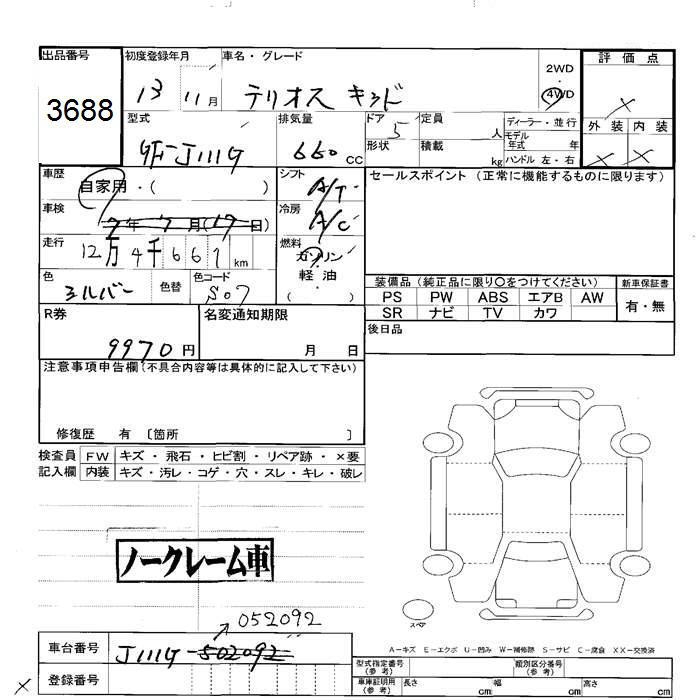 出品番号 初度登録年月 車名・グレード 評価点
3688 13 11月 テリオス キッド 2WD・4WD ×
型式 排気量 ドア 5 定員 人 ディーラー・並行 外装 内装
GF-J111G 660 CC 形状 積載 kg モデル年式 年 × ×
ハンドル 左・右
車歴 自家用・( ) シフト A/T セールスポイント (正常に機能するものに限ります)
車検 7年7月(17日) 冷房 A/C
走行 12万4千667km 燃料 ガソリン
軽油
( )
色 シルバー 色替 色コード S07
装備品 (純正品に限り○をつけてください) 新車保証書
PS PW ABS エアB AW 有・無
SR ナビ TV カワ
R券 9970円 名変通知期限 月 日 後日品
注意事項申告欄(不具合内容等は具体的に記入して下さい)
修復歴 有 〔箇所 〕
検査員 FW キズ・飛石・ヒビ割・リペア跡・×要
記入欄 内装 キズ・汚レ・コゲ・穴・スレ・キレ・破レ
ノークレーム車
スペア
052092
A-キズ E-エクボ U-凹み W-補修跡 S-サビ C-腐食 XX-交換済
車台番号 J111G-502092
登録番号
型式指定番号(参考) 類別区分番号(参考)
車庫証明用(参考) 長さ cm 幅 cm 高さ cm
×